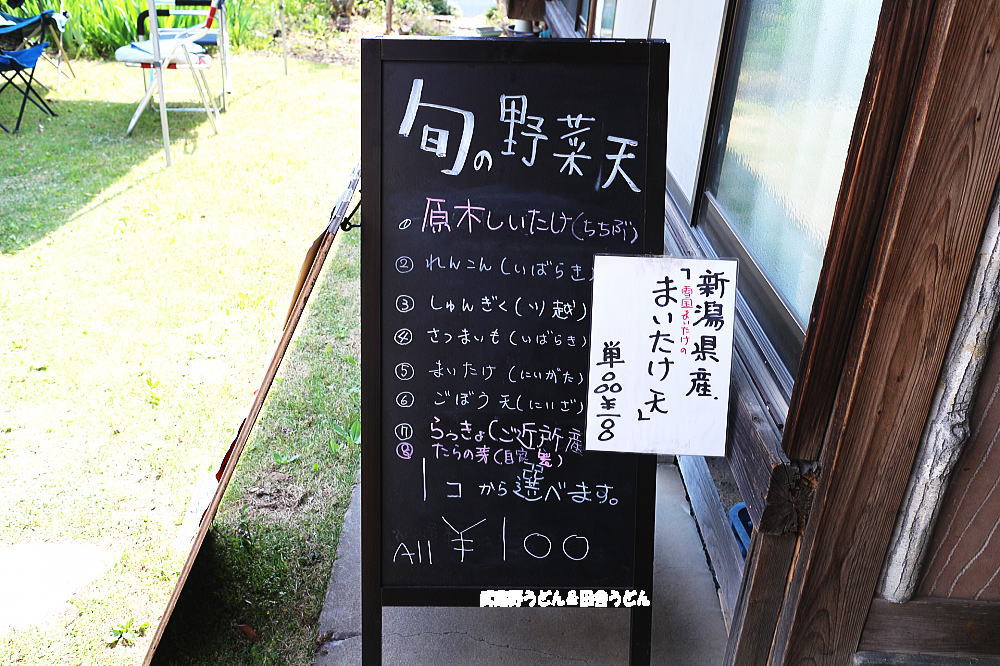 旬の野菜天
① 原木しいたけ(ちちぶ)
② れんこん(いばらき)
③ しゅんぎく(川越)
④ さつまいも(いばらき)
⑤ まいたけ(にいがた)
⑥ ごぼう天(にいざ)
⑦ らっきょ(ご近所産
⑧ たらの芽(自宅裏)
1コから選べます。
All ¥100
新潟県産.
「雪国まいたけの
まいたけ天」
単品¥
武蔵野うどん&田舎うどん